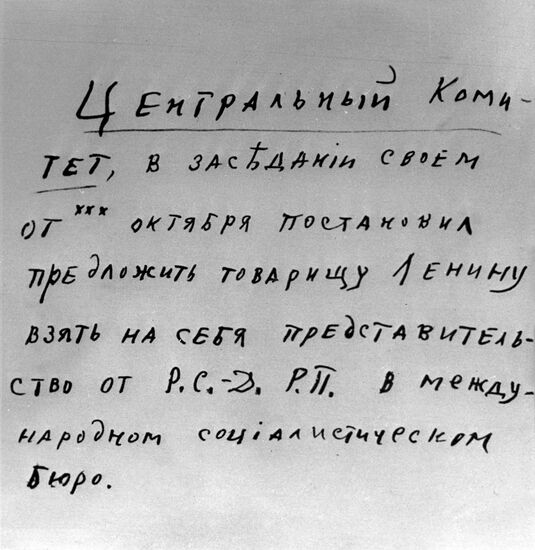 Центральный Коми-
тет, в засѣданіи своем
от ххх октября постановил
предложить товарищу Ленину
взять на себя представитель-
ство от Р.С.-Д. Р.П. в между-
народном соціалистическом
бюро.